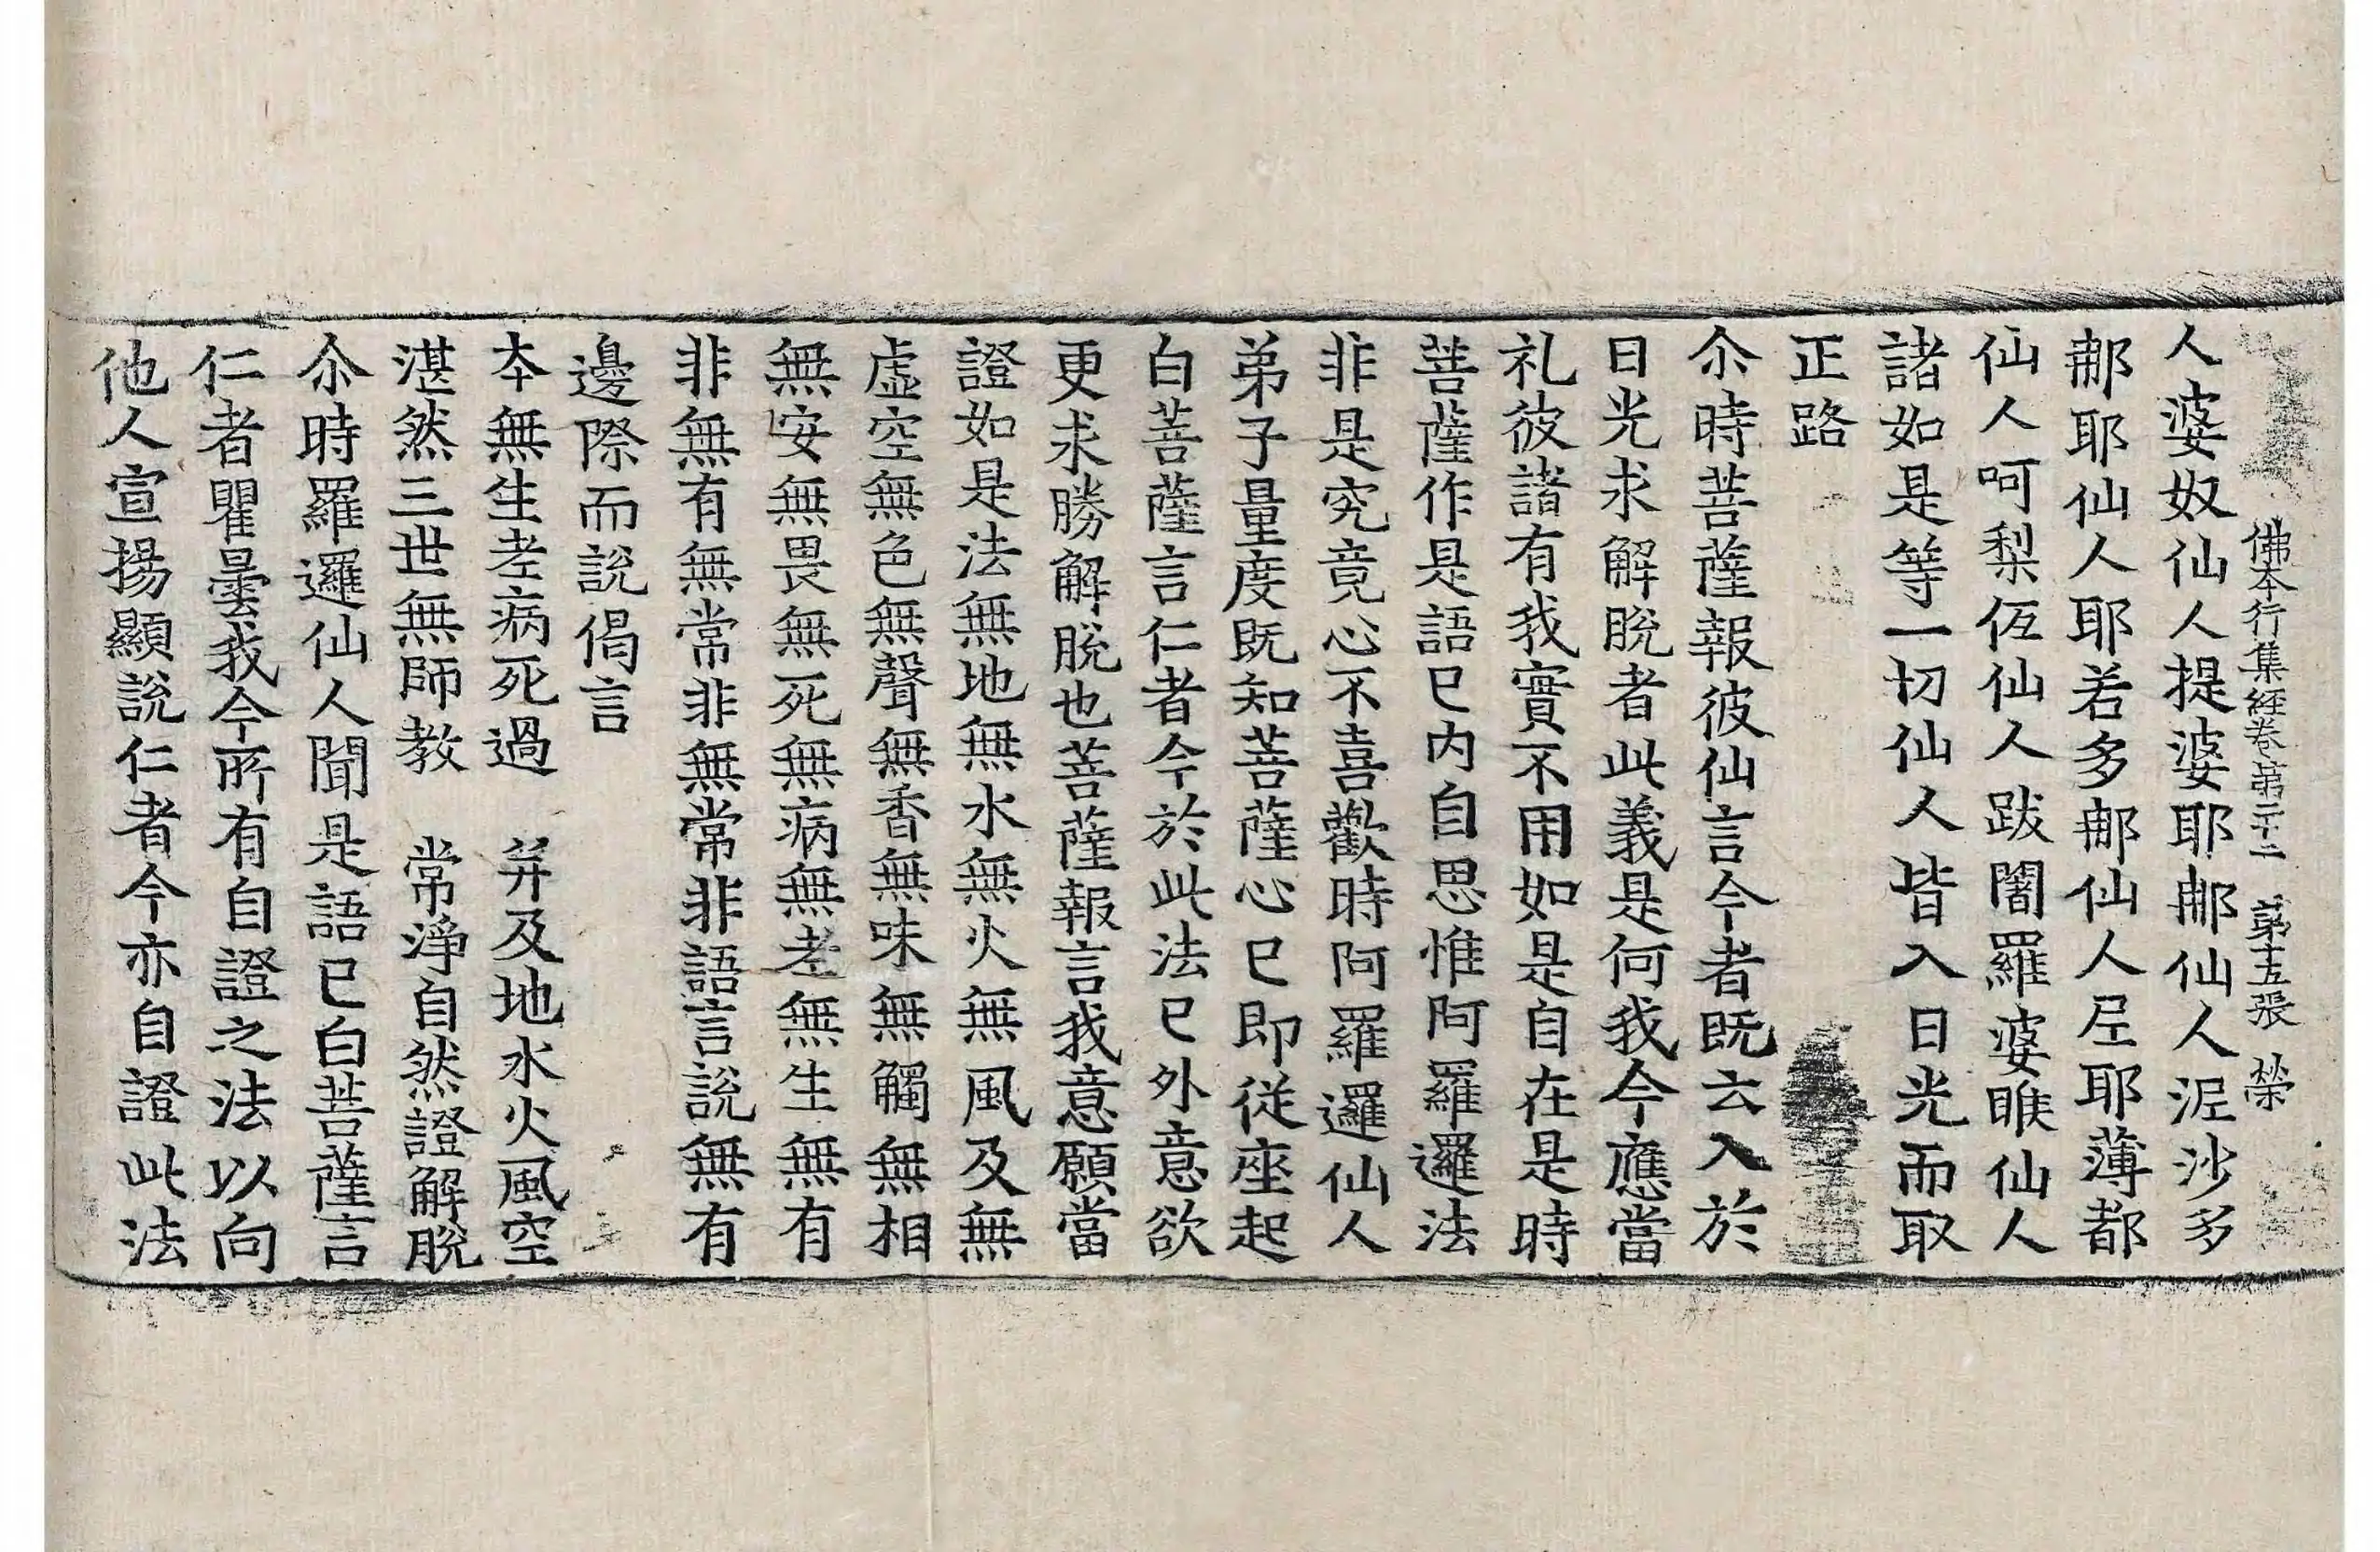 佛本行集經卷第二十二 第十五張 榮
人婆奴仙人提婆耶𨚗仙人泥沙多
𨚗耶仙人耶若多𨚗仙人𡰱耶薄都
仙人呵梨伍仙人跋闍羅婆睺仙人
諸如是等一切仙人皆入日光而取
正路
尒時菩薩報彼仙言今者既云入於
日光求解脫者此義是何我今應當
礼彼諸有我實不用如是自在是時
菩薩作是語已内自思惟阿羅邏法
非是究竟心不喜歡時阿羅邏仙人
弟子量度既知菩薩心已即從座起
白菩薩言仁者今於此法已外意欲
更求勝解脫也菩薩報言我意願當
證如是法無地無水無火無風及無
虛空無色無聲無香無味無觸無相
無安無畏無死無病無老無生無有
非無有無常非無常非語言說無有
邊際而說偈言
本無生老病死過　并及地水火風空
湛然三世無師教　常淨自然證解脫
尒時羅邏仙人聞是語已白菩薩言
仁者瞿曇我今所有自證之法以向
他人宣揚顯說仁者今亦自證此法